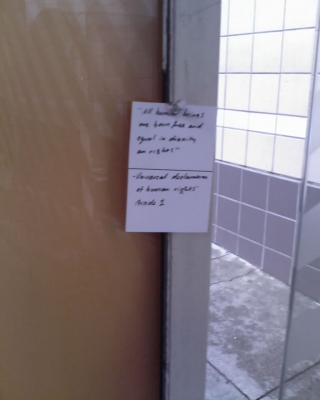 "All human beings
are born free and
equal in dignity
an rights"
-Universal declaration
of human rights
Article 1